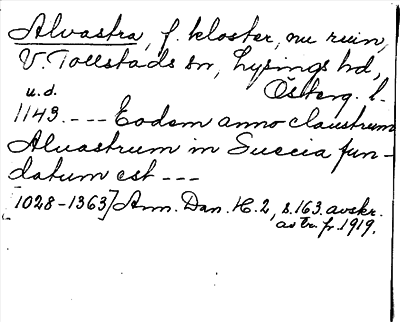 Alvastra, f. kloster, nu ruin,
V. Tollstads sn, Lysings hd,
Österg. l.
u. d.
1143. --- Eodem anno claustrum
Aluastrum in Suecia fun-
datum est ---
[1028-1363] Ann. Dan. H. 2, s. 163. avskr.
av Br. fr. 1919.